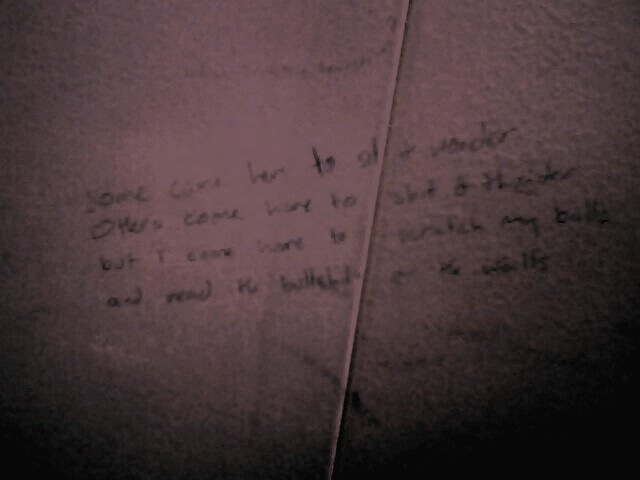 Some come her to sit & wonder
Others come here to shit & thunder
but I come here to scratch my balls
and read the bullshit on the walls